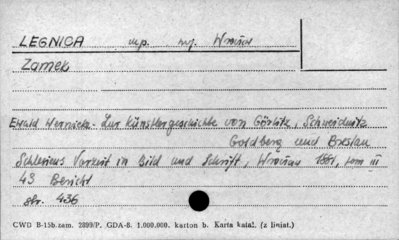 LEGNICA mp. wj. Wrocław
Zamek
Ewald Wernicke - Zur Künstlergeschichte von Görlitz, Schweidnitz
Goldberg und Breslau
Schlesiens Vorzeit in Bild und Schrift, Wrocław 1881, tom III
43 Bericht
str. 436
CWD B-15b. zam. 2899/P. GDA-8. 1.000.000. karton b. Karta katal. (z liniat.)